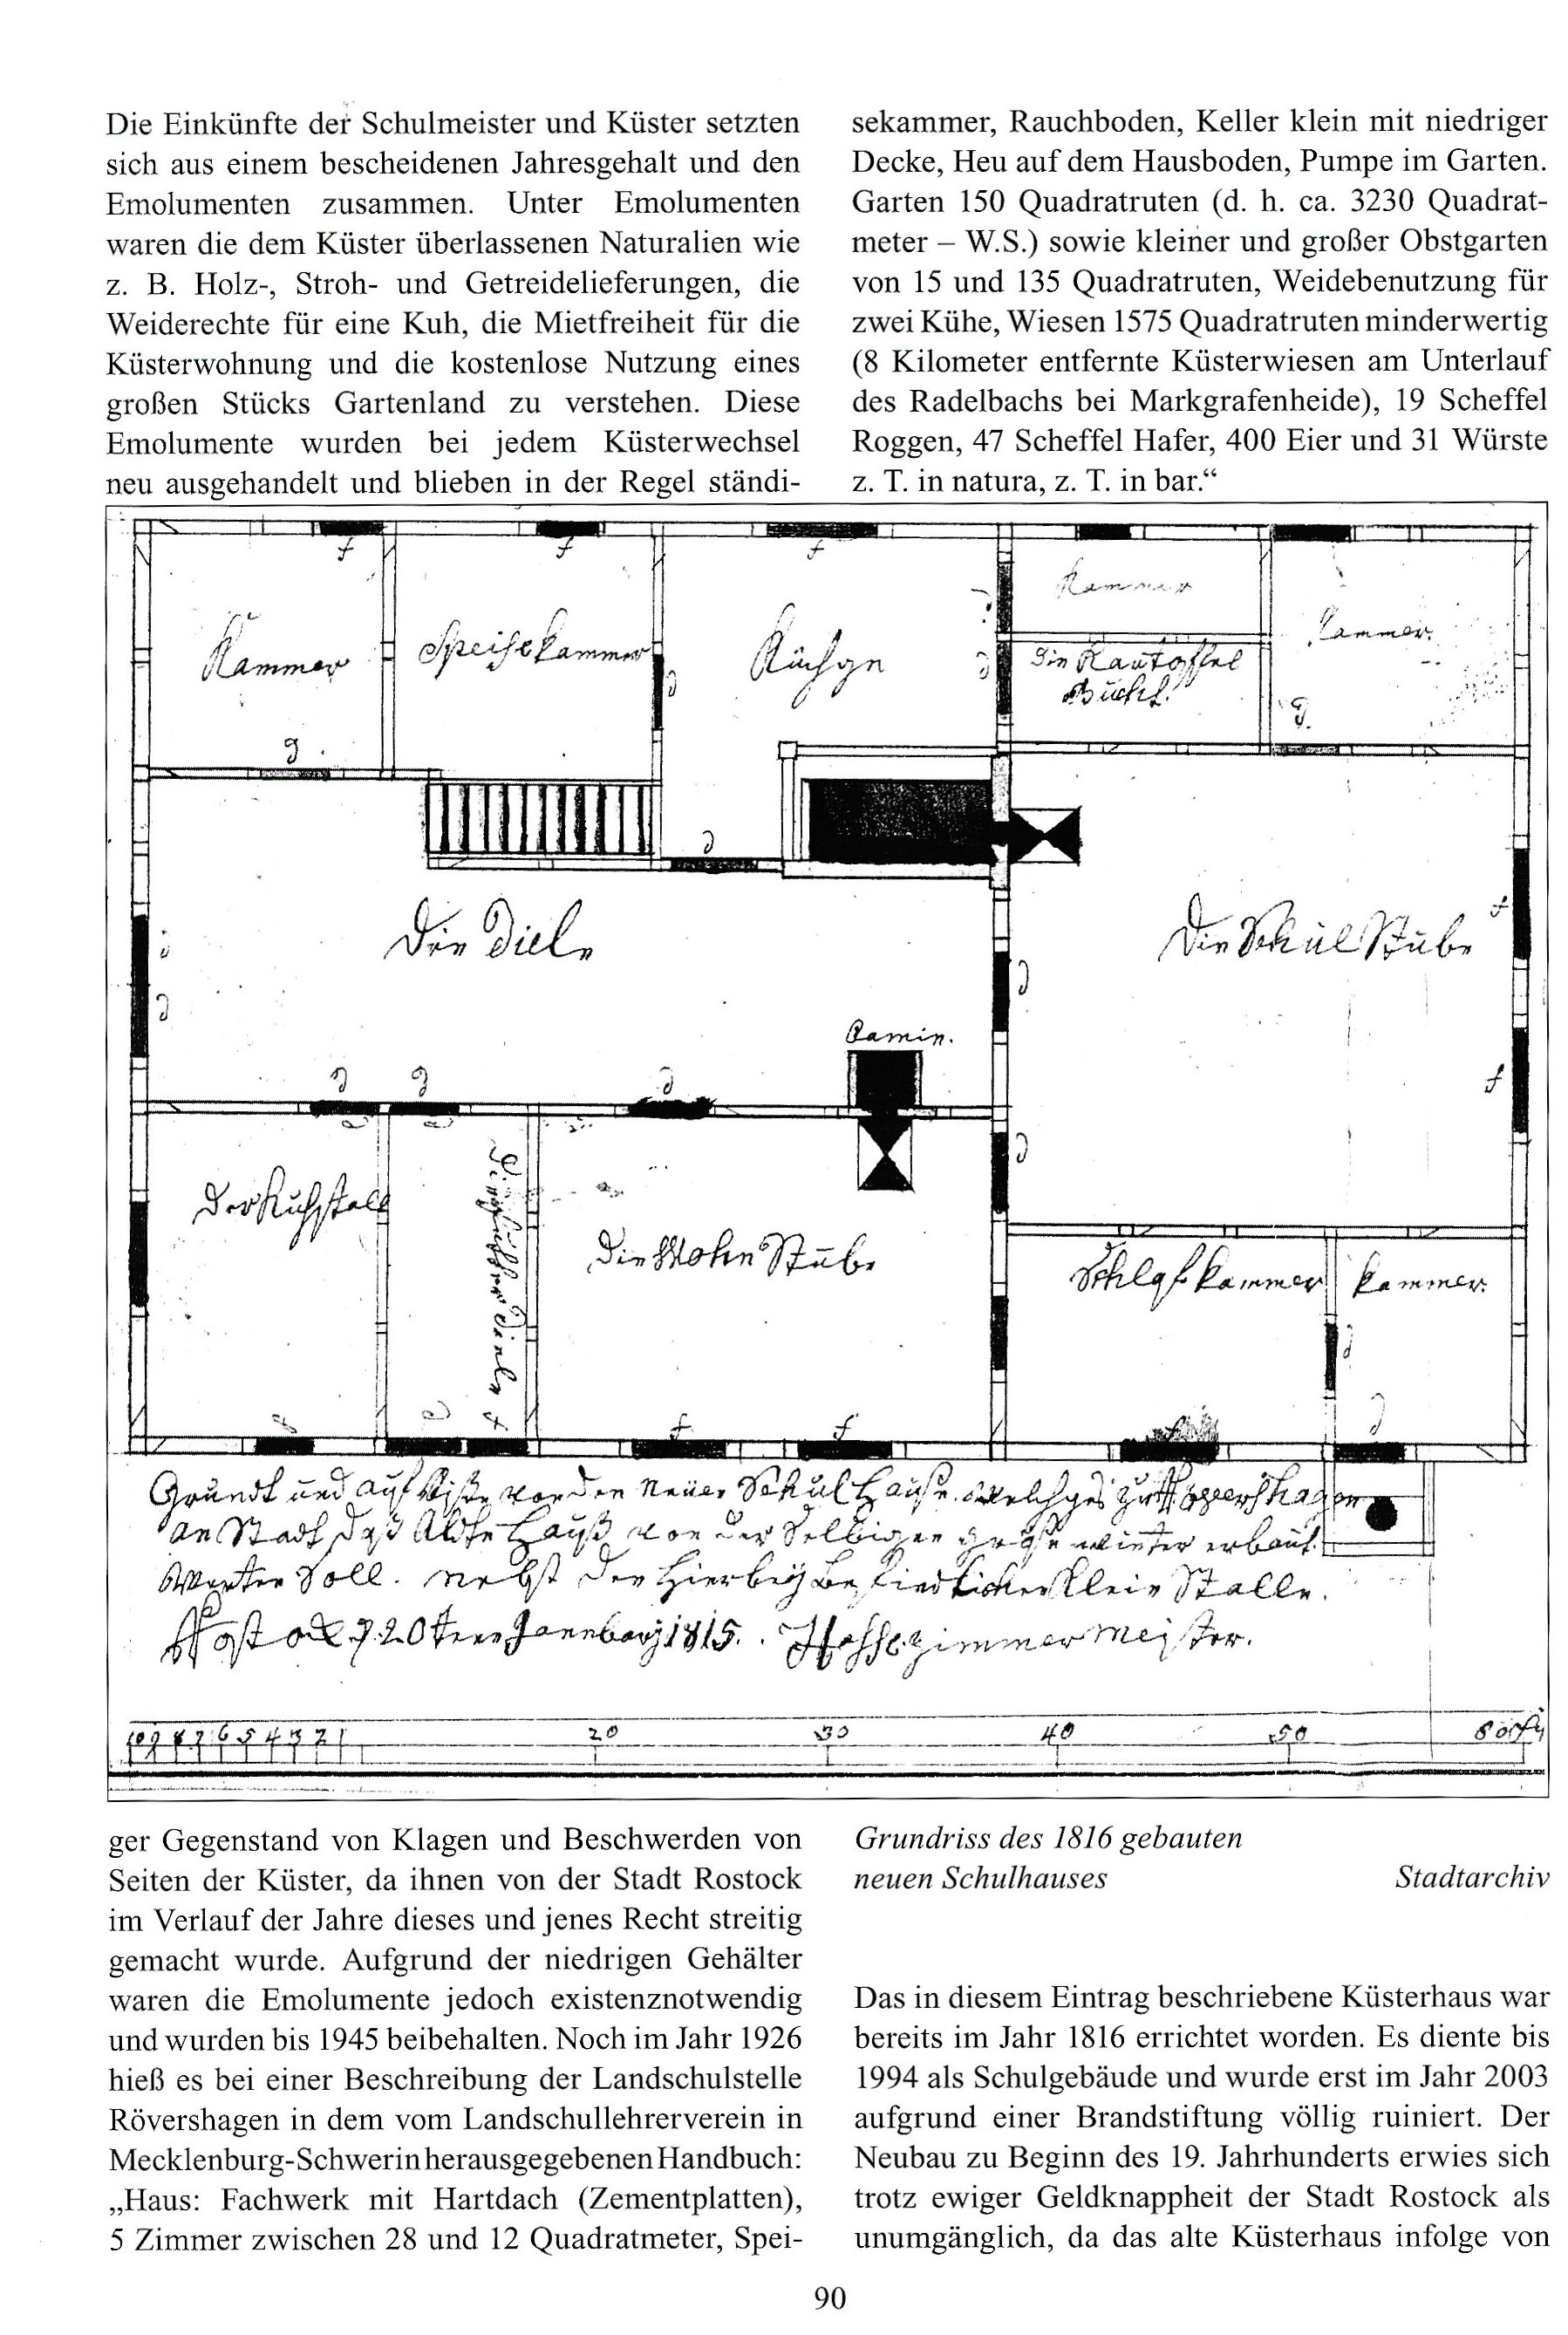 Die Einkünfte der Schulmeister und Küster setzten
sich aus einem bescheidenen Jahresgehalt und den
Emolumenten zusammen. Unter Emolumenten
waren die dem Küster überlassenen Naturalien wie
z. B. Holz-, Stroh- und Getreidelieferungen, die
Weiderechte für eine Kuh, die Mietfreiheit für die
Küsterwohnung und die kostenlose Nutzung eines
großen Stücks Gartenland zu verstehen. Diese
Emolumente wurden bei jedem Küsterwechsel
neu ausgehandelt und blieben in der Regel ständi-
sekammer, Rauchboden, Keller klein mit niedriger
Decke, Heu auf dem Hausboden, Pumpe im Garten.
Garten 150 Quadratruten (d. h. ca. 3230 Quadrat-
meter – W.S.) sowie kleiner und großer Obstgarten
von 15 und 135 Quadratruten, Weidebenutzung für
zwei Kühe, Wiesen 1575 Quadratruten minderwertig
(8 Kilometer entfernte Küsterwiesen am Unterlauf
des Radelbachs bei Markgrafenheide), 19 Scheffel
Roggen, 47 Scheffel Hafer, 400 Eier und 31 Würste
z. T. in natura, z. T. in bar.“
Kammer
Speisekammer
Küchge
Kammer
Die Kartoffel
Bucht
Kammer
Die Diele
Die Schul Stube
Camin.
Der Kuhstall
Die Wohn Stube
Schlafkammer
Kammer
Grundt und auf Riße von den Neuen Schul Hause welches zu Röwershagen
an Stadt das Alte Hauß von der Selbigen größe wieder erbaut
Werden Soll. nebst den Hierbey befindlichen Klein Stalle.
Rostock 20 Januarÿ 1815. Hasse zimmermeister.
10 9 8 7 6 5 4 3 2 1 20 30 40 50 60
ger Gegenstand von Klagen und Beschwerden von
Seiten der Küster, da ihnen von der Stadt Rostock
im Verlauf der Jahre dieses und jenes Recht streitig
gemacht wurde. Aufgrund der niedrigen Gehälter
waren die Emolumente jedoch existenznotwendig
und wurden bis 1945 beibehalten. Noch im Jahr 1926
hieß es bei einer Beschreibung der Landschulstelle
Rövershagen in dem vom Landschullehrerverein in
Mecklenburg-Schwerin herausgegebenen Handbuch:
„Haus: Fachwerk mit Hartdach (Zementplatten),
5 Zimmer zwischen 28 und 12 Quadratmeter, Spei-
Grundriss des 1816 gebauten
neuen Schulhauses Stadtarchiv
Das in diesem Eintrag beschriebene Küsterhaus war
bereits im Jahr 1816 errichtet worden. Es diente bis
1994 als Schulgebäude und wurde erst im Jahr 2003
aufgrund einer Brandstiftung völlig ruiniert. Der
Neubau zu Beginn des 19. Jahrhunderts erwies sich
trotz ewiger Geldknappheit der Stadt Rostock als
unumgänglich, da das alte Küsterhaus infolge von
90